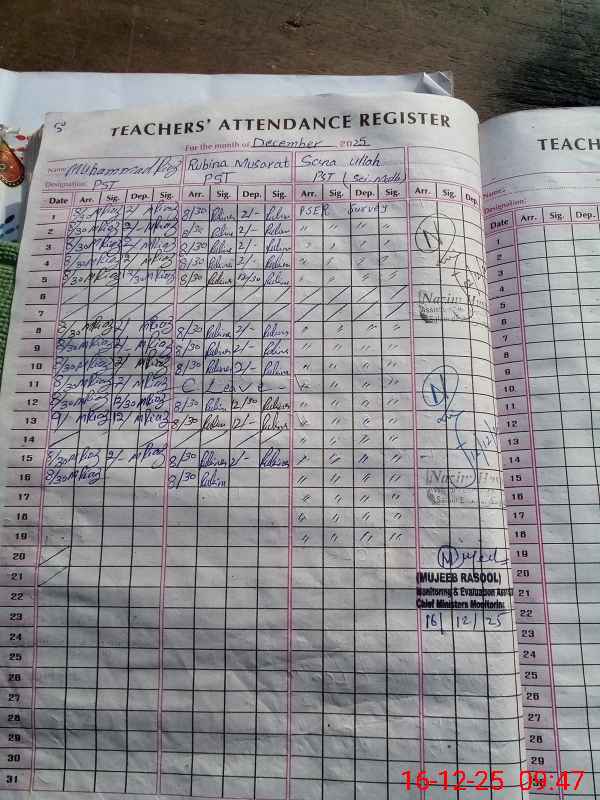 5
TEACHERS' ATTENDANCE REGISTER
For the month of December 2025
Name: Muhammad Riaz Rubina Musarat Sana Ullah
Designation: PST PST PST (Sci. Math)
Date Arr. Sig. Dep. Sig. Arr. Sig. Dep. Sig. Arr. Sig. Dep. Sig. Arr. Sig. Dep. Sig.
1 8/30 MRiaz 2/- MRiaz 8/30 Rubina 2/- Rubina PSER Survey
2 8/30 MRiaz 2/- MRiaz 8/30 Rubina 2/- Rubina " " " "
3 8/30 MRiaz 2/- MRiaz 8/30 Rubina 2/- Rubina " " " "
4 8/30 MRiaz 2/- MRiaz 8/30 Rubina 2/- Rubina " " " "
5 8/30 MRiaz 12/30 MRiaz 8/30 Rubina 12/30 Rubina " " " "
6
7
8 8/30 MRiaz 2/- MRiaz 8/30 Rubina 2/- Rubina " " " "
9 8/30 MRiaz 2/- MRiaz 8/30 Rubina 2/- Rubina " " " "
10 8/30 MRiaz 2/- MRiaz 8/30 Rubina 2/- Rubina " " " "
11 8/30 MRiaz 2/- MRiaz C Leave " " " "
12 8/30 MRiaz 12/30 MRiaz 8/30 Rubina 12/30 Rubina " " " "
13 9/ MRiaz 12/ MRiaz 8/30 Rubina 12/- Rubina " " " "
14 " " " "
15 8/30 MRiaz 2/- MRiaz 8/30 Rubina 2/- Rubina " " " "
16 8/30 MRiaz 8/30 Rubina " " " "
17 " " " "
18 " " " "
19 " " " "
20
21
22
23
24
25
26
27
28
29
30
31
N
Nazir
N
12/12/
Nazir
M Mujeeb
(MUJEEB RASOOL)
Monitoring & Evaluation
Chief Ministers Monitoring
16/12/25
TEACH
Name:
Designation:
Date Arr. Sig. Dep.
1
2
3
4
5
6
7
8
9
10
11
12
13
14
15
16
17
18
19
20
21
22
23
24
25
26
27
28
29
30
16-12-25 09:47